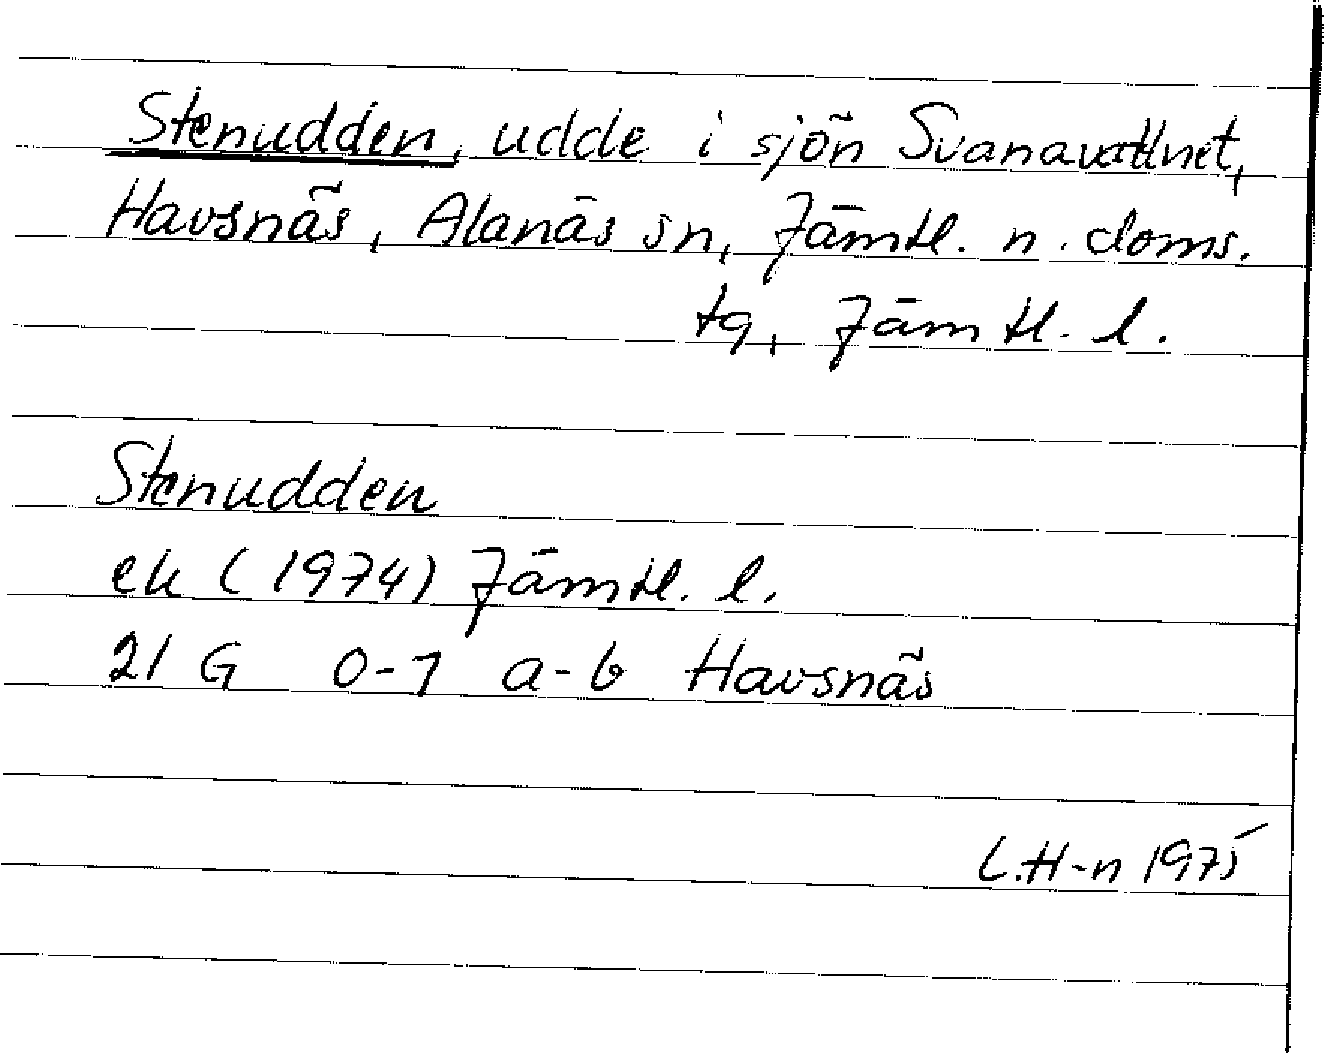 Stenudden, udde i sjön Svanavattnet,
Havsnäs, Alanäs sn, Jämtl. n. doms.
tg, Jämtl. l.
Stenudden
ek (1974) Jämtl. l.
21 G 0-1 a-b Havsnäs
L.H-n 1975